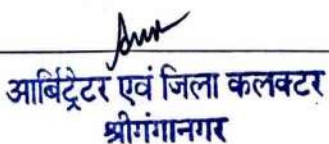 आर्बिट्रैटर एवं जिला कलक्टर
श्रीगंगानगर